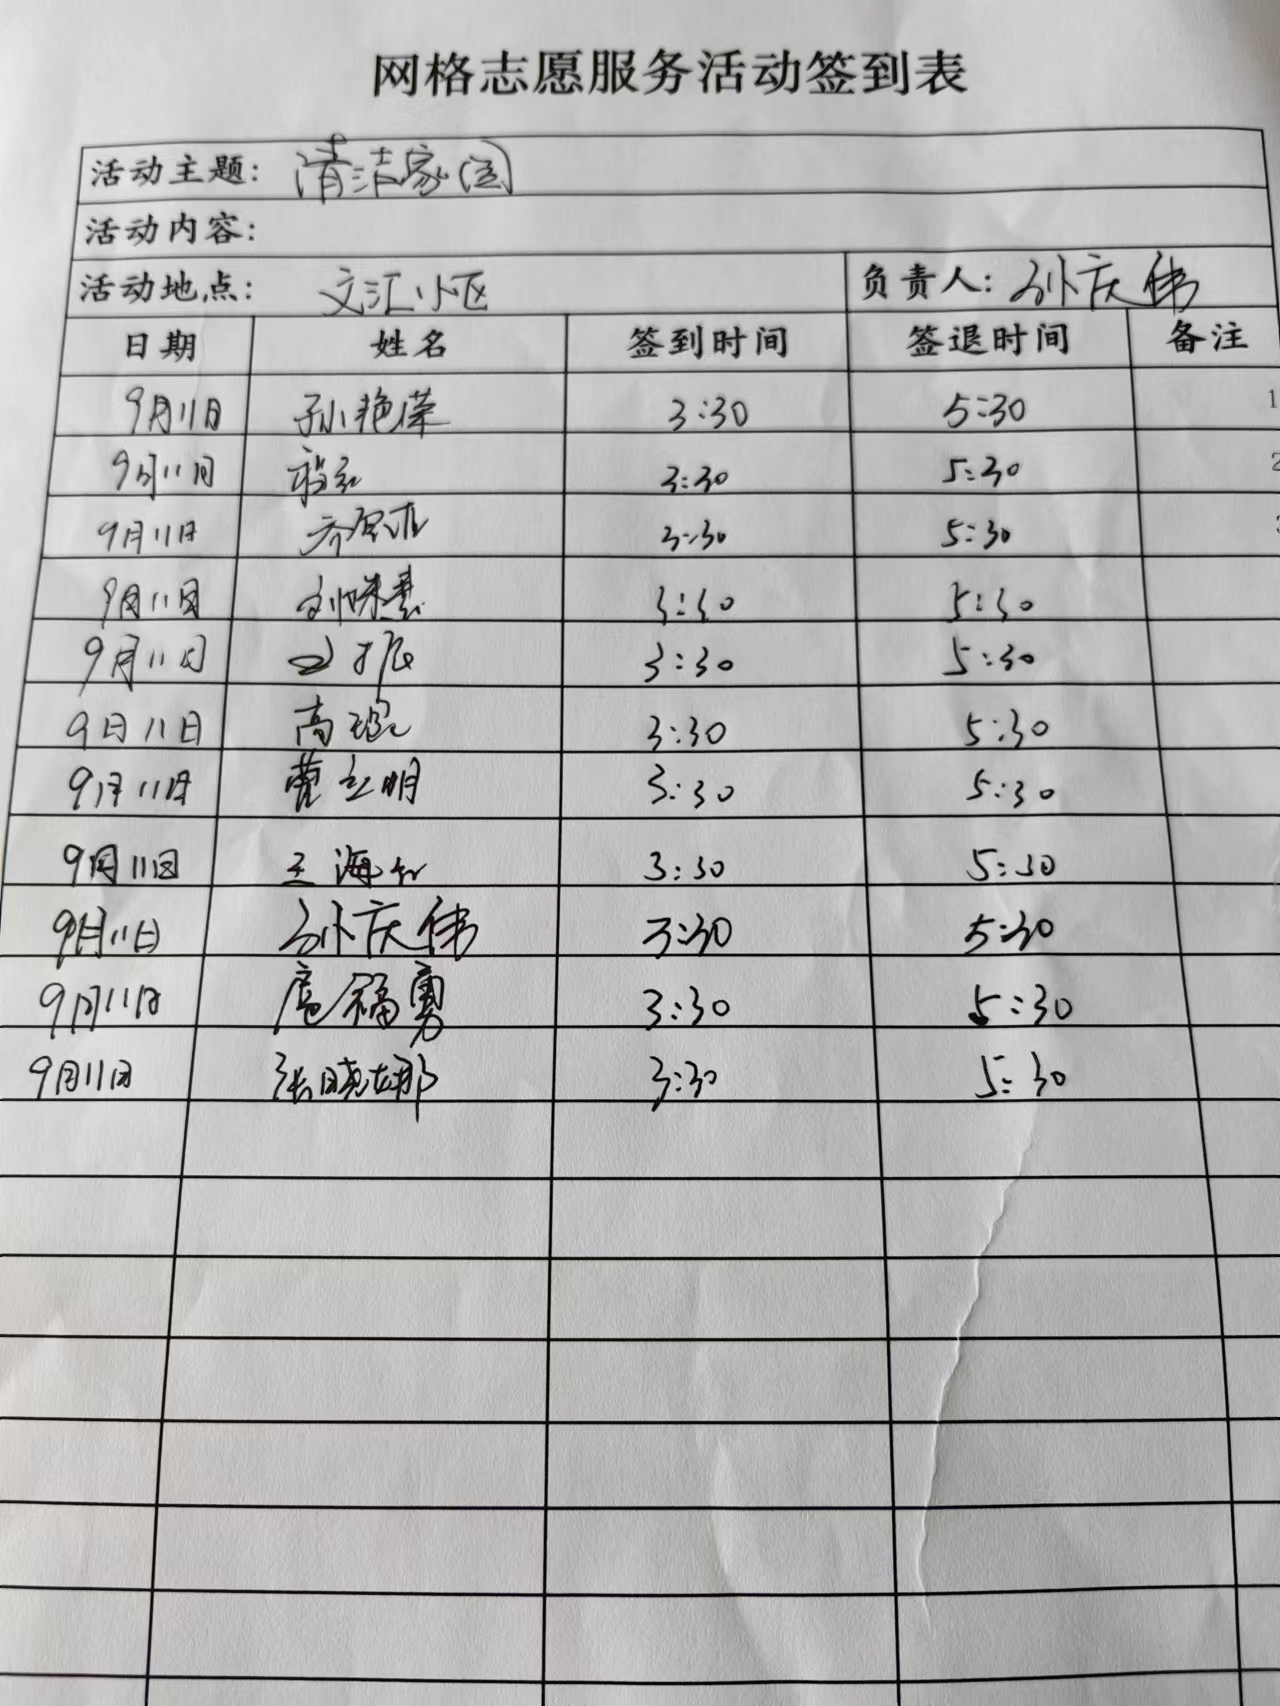 网格志愿服务活动签到表
活动主题: 清洁家园
活动内容:
活动地点: 文汇小区 负责人: 孙庆伟
日期 姓名 签到时间 签退时间 备注
9月11日 孙艳萍 3:30 5:30 1
9月11日 3:30 5:30 2
9月11日 3:30 5:30
9月11日 3:30 5:30
9月11日 3:30 5:30
9日11日 高 3:30 5:30
9月11日 曹立明 3:30 5:30
9月11日 王海红 3:30 5:30
9月11日 孙庆伟 3:30 5:30
9月11日 3:30 5:30
9月11日 张晓娜 3:30 5:30